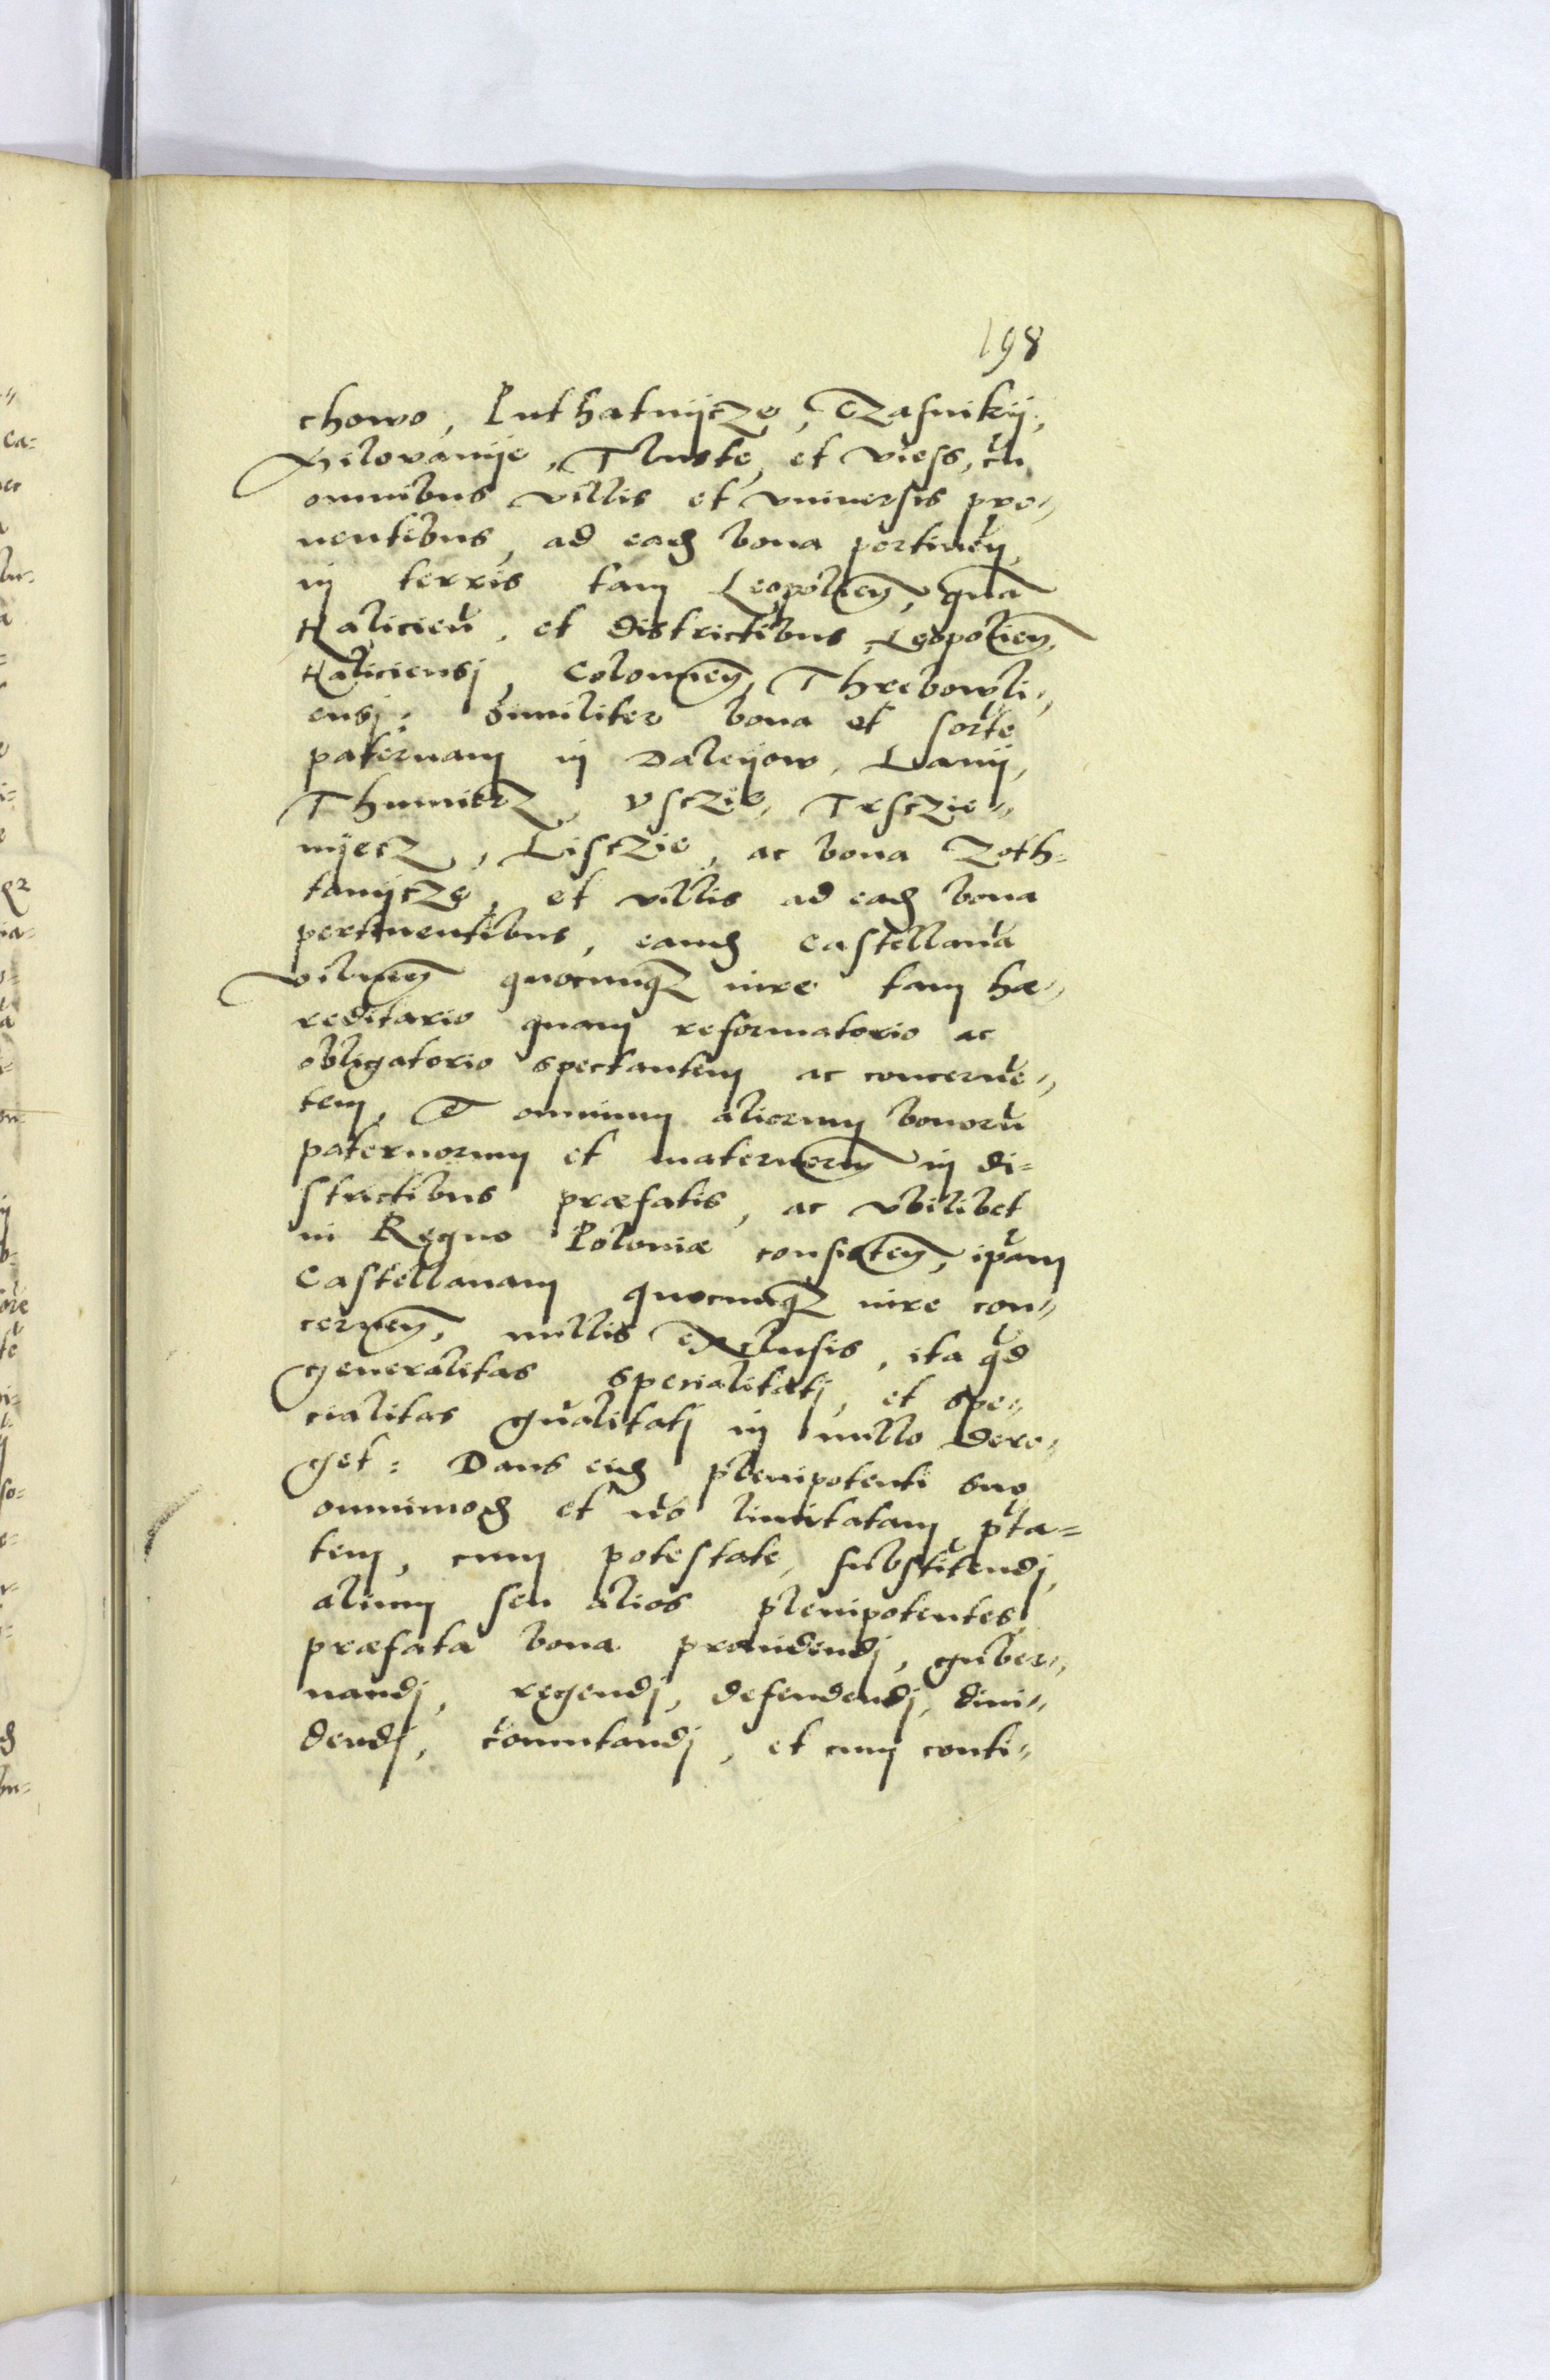 198
chowo, Puthatnÿcze, Czasnikÿ,
Milovanÿe, Tluste, et viess, cū
omnibus villis et vniuersis pro„
uentibus, ad eadē bona pertinēn
in terris tam Leopolien̄, quā
Halicieñ, et districtibus Leopolien̄,
Haliciensj, Colomien̄, Threbowli„
ensj: Similiter bona et sortē
paternam in Daleÿow, Lanÿ,
Thumierz, Vsczie, Trsczie„
nÿecz, Lisczie, ac bona Zoth=
tanÿcze, et villis ad eadē bona
pertinentibus, eandē Castellanā
vilnen̄ quocunq3 iure tam hæ„
reditario quam reformatorio ac
obligatorio spectantem ac concernē„
tem, Et omnium aliorum bonorū
paternorum et maternorum in di=
strictibus præfatis, ac vbilibet
in Regno Poloniæ consisten̄, ipām
Castellanam quocunq3 iure con„
cernen̄, nullis exclusis, ita qd
generalitas specialitatj, et spe„
cialitas gn̄alitatj in nullo dero„
get: Dans eidē plenipotenti suo
omnimodē et nō limitatam ptā=
tem, cum potestate, substitūendj
alium seu alios plenipotentes
præfata bona prouidendj, guber„
nandj, regendj, defendendj, diui„
dendj, comutandj, et cum conti„